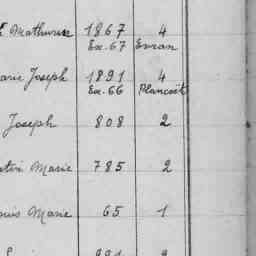 Mathurin 1867 4
Ex. 67 Evran
arie Joseph 1891 4
Ex. 66 Plancoët
Joseph 808 2
Marie 785 2
ouis Marie 65 1